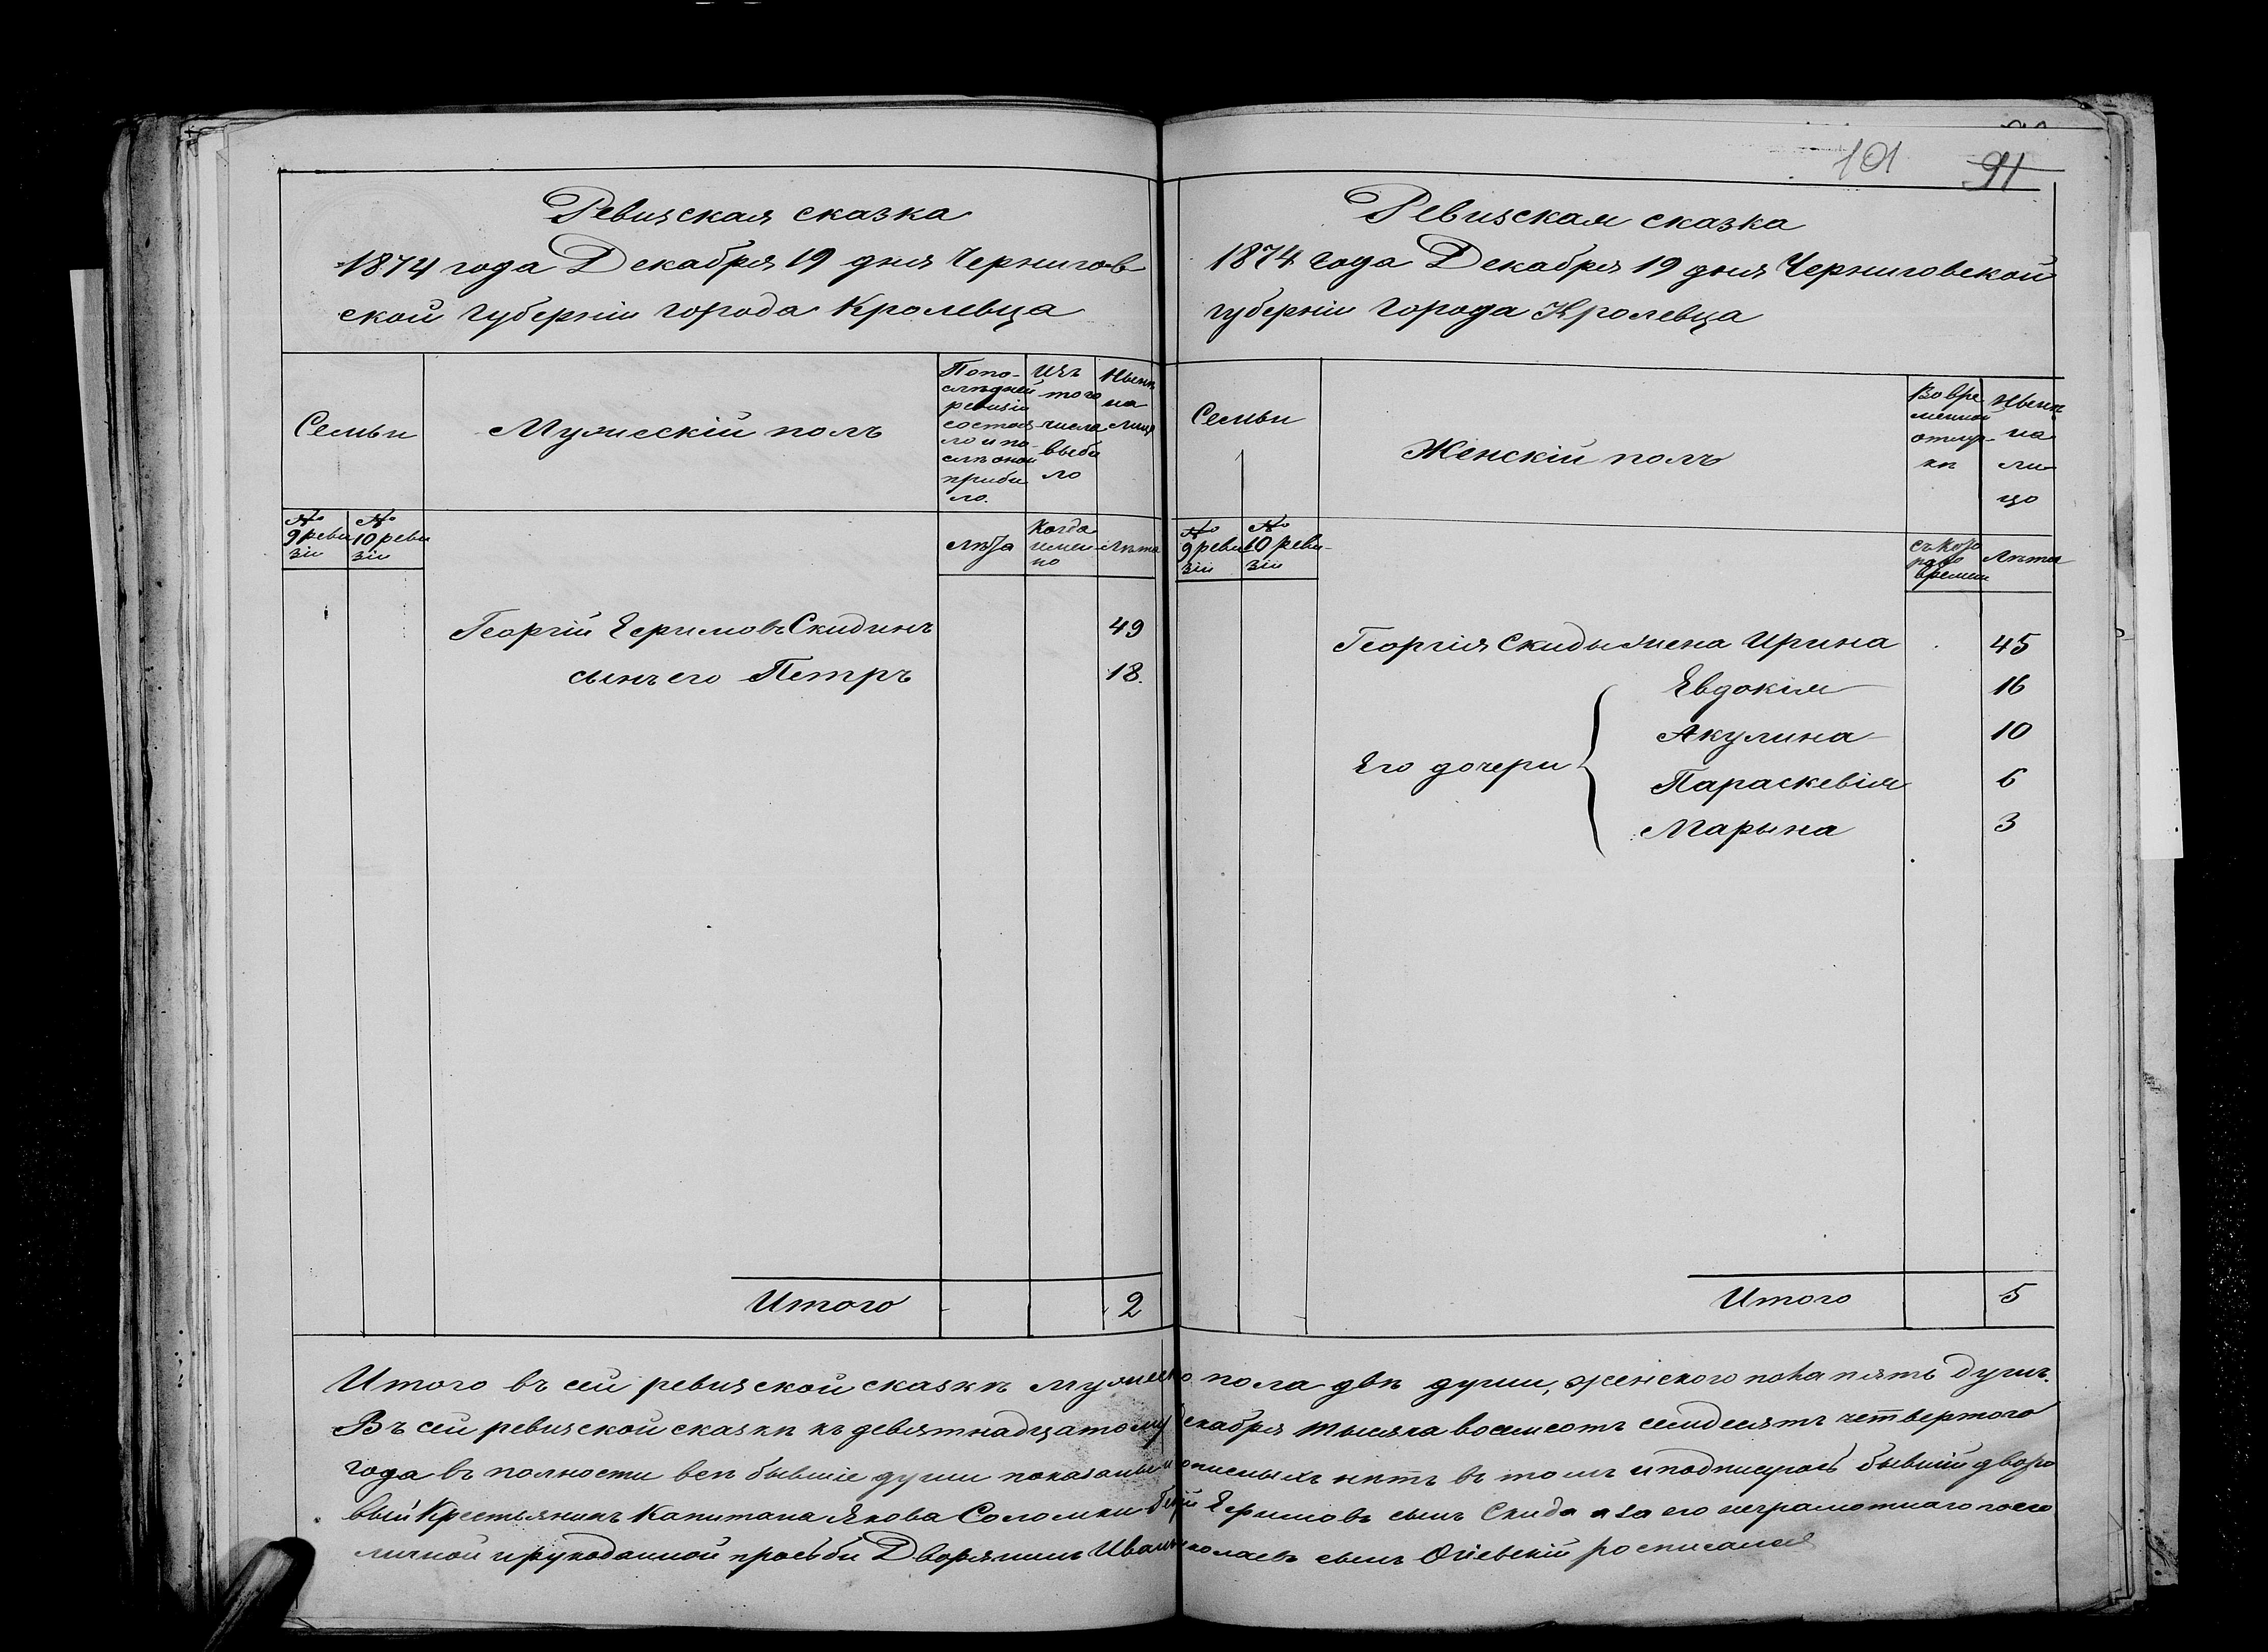 Ревизская сказка
1874 года Декабря 19 дня Чернигов
ской губерніи города Кролевца
Семьи
Мужескій полъ
Попо-
слѣдней
ревизіи
состоя
ло и по-
слѣ оной
прибы
ло.
Изъ
того
числа
выбы
ло
Нынѣ
на
лицо
№ 9 реви
зіи
№ 10 реви
зіи
лѣта
Когда
имен-
но
Лѣта
Георгій Ефимовъ Скидинъ 49
сынъ его Петръ 18.
Итого 2
101 91
Ревизская сказка
1874 года Декабря 19 дня Черниговской
губерніи города Кролевца
Семьи
Женскій полъ
Во вре
менной
отлуч-
кѣ
Нынѣ
на
ли-
цо
№ 9 реви
зіи
№ 10 реви-
зіи
съ кото
раго
времени
Лѣта
Георгія Скиды жена Ирина 45
Его дочери
Евдокія 16
Акулина 10
Параскевія 6
Марына 3
Итого 5
Итого въ сей ревизской сказкѣ мужеско пола двѣ души, женского пола пять душъ.
Въ сей ревизской сказкѣ къ девятнадцатому декабря тысяча восемсотъ семдесятъ четвертого
года въ полности всѣ бывшіе души показаны и описныхъ нѣтъ въ томъ и подписуюсь бывшій дворо
вый Крестьянинъ Капитана Якова Соломки Ефимовъ сынъ Скида а за его неграмотнаго
личной и рукоданной прозьби Дворянинъ Иванъ сынъ Огіевскій росписался